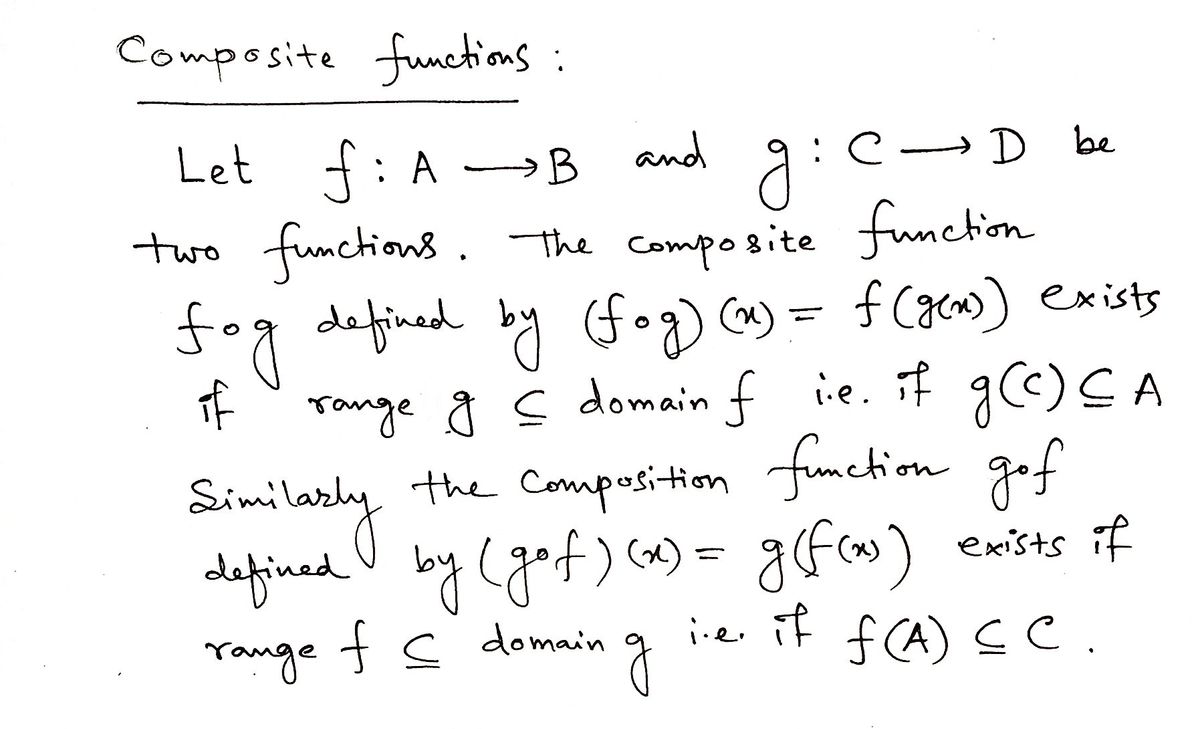 Composite functions :
Let f : A ⟶ B and g : C ⟶ D be
two functions. The composite function
fog defined by (fog)(x) = f(g(x)) exists
if range g ⊆ domain f i.e. if g(C) ⊆ A
Similarly the Composition function gof
defined by (gof)(x) = g(f(x)) exists if
range f ⊆ domain g i.e. if f(A) ⊆ C.